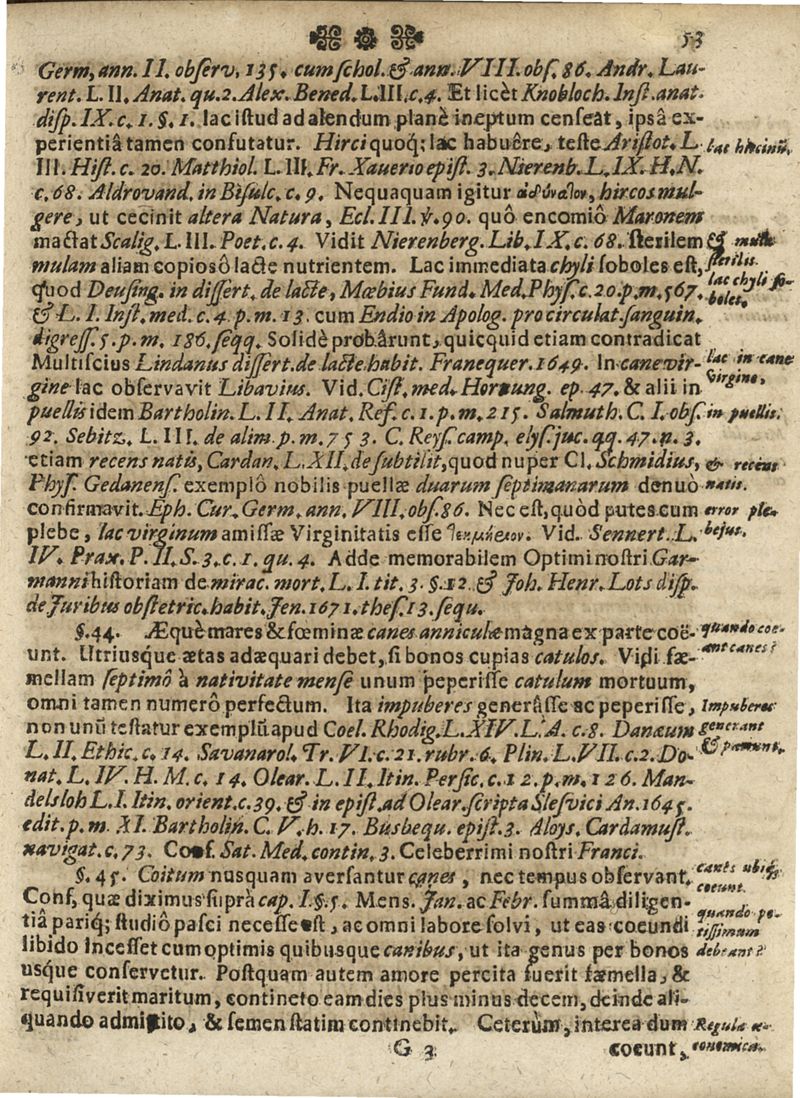 53
Germ, ann. II. observ. 135. cum schol. & ann. VIII. obs. 86. Andr. Lau-
rent. L. II. Anat. qu. 2. Alex. Bened. L. III. c. 4. Et licèt Knobloch. Inst. anat.
disp. IX. c. 1. §. 1. lac istud ad alendum planè ineptum censeat, ipsâ ex-
perientiâ tamen confutatur. Hirci quoq; lac habuêre, teste Aristot. L.
lac hircinũ,
III. Hist. c. 20. Matthiol. L. III. Fr. Xauerio epist. 3. Nierenb. L. IX. H. N.
c. 68. Aldrovand. in Bisulc. c. 9. Nequaquam igitur ἀδύναῖον, hircos mul-
gere, ut cecinit altera Natura, Ecl. III. ℣. 90. quô encomiô Maronem
mactat Scalig. L. III. Poet. c. 4. Vidit Nierenberg. Lib. IX. c. 68. sterilem
& mulæ
mulam aliam copiosô lacte nutrientem. Lac immediata chyli soboles est,
sterilis.
lac chyli so-
quod Deusing. in dissert. de lacte, Mœbius Fund. Med. Phys. c. 20. p. m. 567.
boles.
& L. I. Inst. med. c. 4. p. m. 13. cum Endio in Apolog. pro circulat. sanguin.
digress. 5. p. m. 186. seqq. Solidè probârunt, quicquid etiam contradicat
Multiscius Lindanus dissert. de lacte habit. Franequer. 1649. In cane vir-
lac in cane
gine lac observavit Libavius. Vid. Cist. med. Hornung. ep. 47. & alii in
virgine,
puellis idem Bartholin. L. II. Anat. Ref. c. 1. p. m. 215. Salmuth. C. I. obs.
in puellis.
92. Sebitz. L. III. de alim. p. m. 753. C. Reys. camp. elys. juc. qq. 47. n. 3.
etiam recens natis, Cardan. L. XII. de subtilit, quod nuper Cl. Schmidius,
& recens
Phys. Gedanens. exemplô nobilis puellæ duarum septimanarum denuò
natis.
confirmavit. Eph. Cur. Germ. ann. VIII. obs. 86. Nec est, quòd putes cum
error ple-
plebe, lac virginum amissæ Virginitatis esse Ἰεκμήειον. Vid. Sennert. L.
bejus.
IV. Prax. P. II. S. 3. c. 1. qu. 4. Adde memorabilem Optimi nostri Gar-
manni historiam de mirac. mort. L. I. tit. 3. §. 12. & Joh. Henr. Lots disp.
de Juribus obstetric. habit. Jen. 1671. thes. 13. sequ.
§. 44. Æquè mares & fœminæ canes anniculæ magna ex parte coë-
quando coe-
unt. Utriusque ætas adæquari debet, si bonos cupias catulos. Vidi fæ-
ant canes?
mellam septimô à nativitate mense unum peperisse catulum mortuum,
omni tamen numerô perfectum. Ita impuberes generâsse ac peperisse,
Impuberes
non unũ testatur exemplũ apud Coel. Rhodig. L. XIV. L. A. c. 8. Danæum
generant
L. II. Ethic. c. 14. Savanarol. Tr. VI. c. 21. rubr. 6. Plin. L. VII. c. 2. Do-
& pariunt.
nat. L. IV. H. M. c. 14. Olear. L. II. Itin. Persic. c. 12. p. m. 126. Man-
delsloh L. I. Itin. orient. c. 39. & in epist. ad Olear. scripta Slesvici An. 1645.
edit. p. m. XI. Bartholin. C. V. h. 17. Busbequ. epist. 3. Aloys. Cardamust.
navigat. c. 73. Conf. Sat. Med. contin. 3. Celeberrimi nostri Franci.
§. 45. Coitum nusquam aversantur canes, nec tempus observant.
canes ubivis
coeunt.
Conf, quæ diximus suprà cap. I. §. 5. Mens. Jan. ac Febr. summâ diligen-
quando po-
tiâ pariq; studiô pasci necesse est, ac omni labore solvi, ut eas coeundi
tissimum
libido incesset cum optimis quibusque canibus, ut ita genus per bonos
debeant?
usque conservetur. Postquam autem amore percita fuerit fæmella, &
requisiverit maritum, contineto eam dies plus minus decem, deinde ali-
quando admittito, & semen statim continebit. Ceterùm, interea dum
Regula œ-
G 3 coeunt,
conomica.